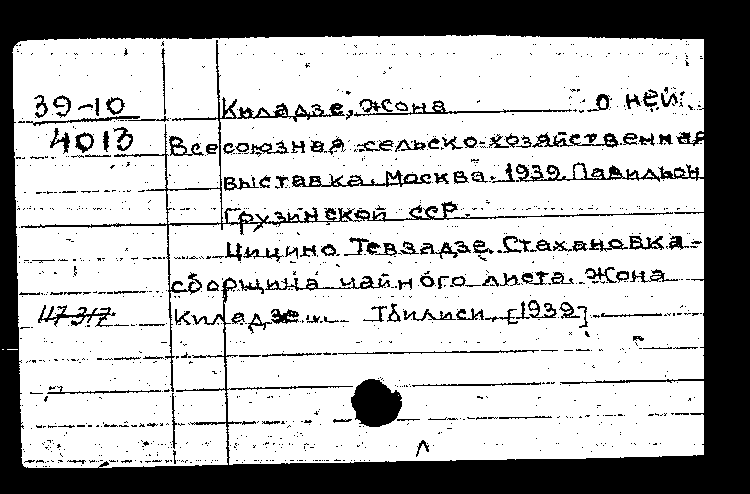 39-10 Киладзе, Жона о ней:
4013 Всесоюзная сельско-хозяйственная
выставка. Москва. 1939. Павильон
Грузинской ССР.
Цицино Тевзадзе. Стахановка-
сборщица чайного листа. Жона
117317 Киладзе... Тбилиси, [1939].